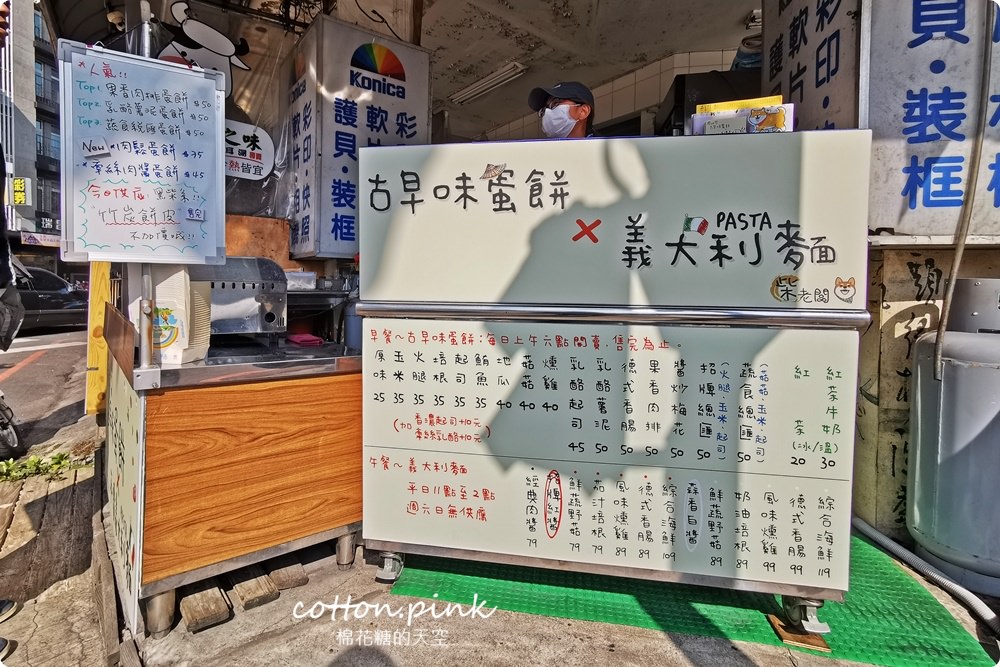 人氣!!
Top1. 果香肉排蛋餅 $50
Top2. 乳酪薯泥蛋餅 $50
Top3. 蔬食總匯蛋餅 $50
New 肉鬆蛋餅 $35
牽絲肉醬蛋餅 $45
今日供應:黑柴系!!
竹炭餅皮
不加價哦!!
之味
冷熱皆宜
Konica
護貝・裝框
軟片・快照
彩印
護貝・裝框
軟片
彩印
古早味蛋餅
×
義大利麵
PASTA
柴老闆
早餐~古早味蛋餅:每日上午六點開賣.售完為止.
原味 25
玉米 35
火腿 35
培根 35
起司 35
鮪魚 35
地瓜 40
菇菇 40
燻雞 40
乳酪起司 45
乳酪薯泥 50
德式香腸 50
果香肉排 50
醬炒梅花 50
招牌總匯 (火腿・玉米・起司) 50
蔬食總匯 (菇菇・玉米・起司) 50
紅茶 20
紅茶牛奶 30
(冰/溫)
(加 香濃起司+10元
牽絲乳酪+10元)
午餐~義大利麵
平日11點至2點
週六日無供應
經典肉醬 79
招牌紅醬
鮮蔬野菇 79
茄汁培根 79
風味燻雞 89
德式香腸 89
綜合海鮮 109
蒜香白醬
鮮蔬野菇 89
奶油培根 89
風味燻雞 99
德式香腸 99
綜合海鮮 119
彩券
cotton.pink
棉花糖的天空